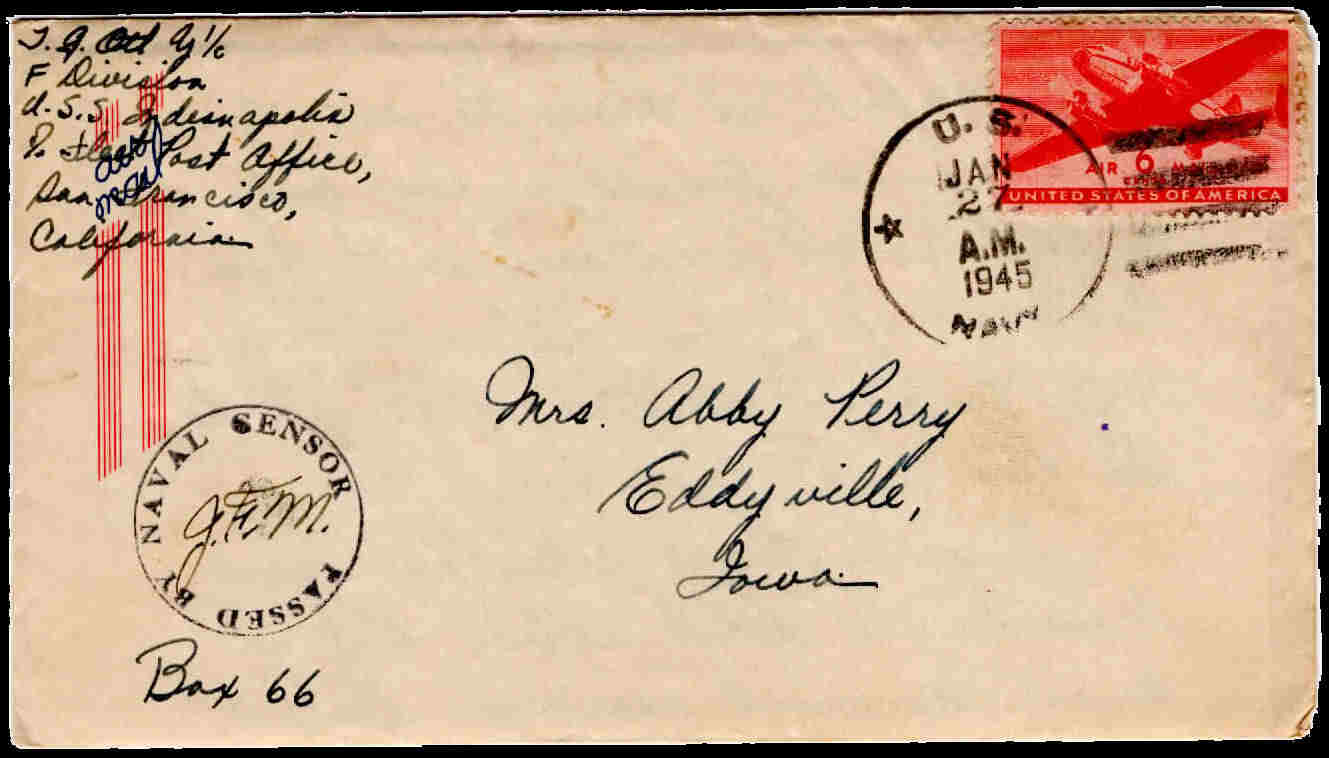 T. J. Ott Y 1/c
F Division
U.S.S. Indianapolis
% Fleet Post Office,
San Francisco,
California
U. S.
JAN
27
A.M.
1945
NAVY
AIR 6 MAIL
UNITED STATES OF AMERICA
Mrs. Abby Perry
Eddyville,
Iowa
PASSED BY NAVAL CENSOR
J.F.M.
Box 66